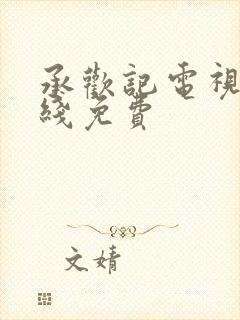 承歡記電視
綫免費
文婧